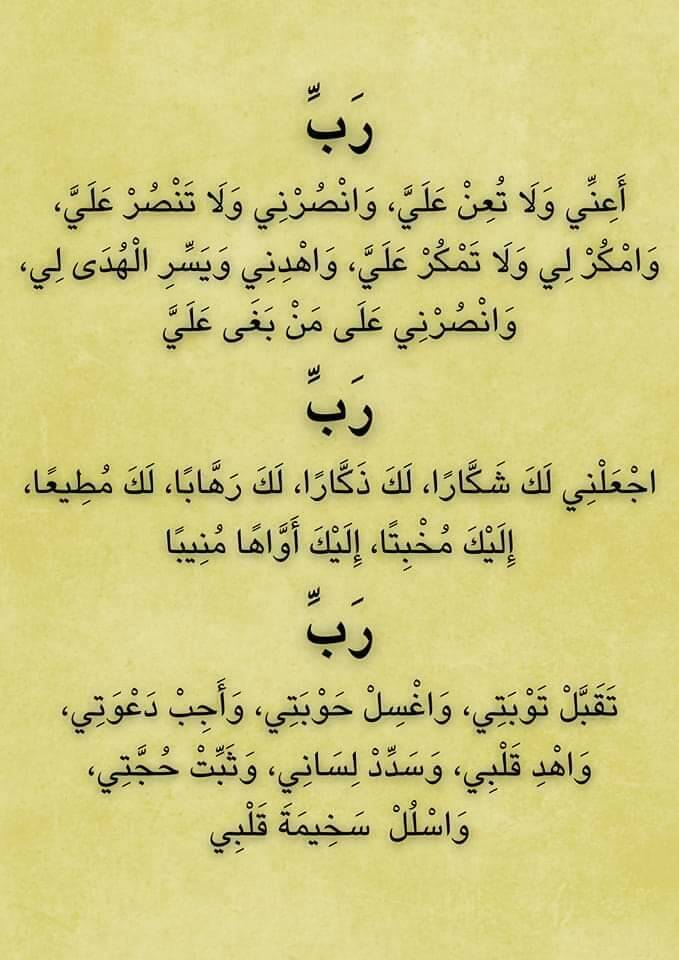 رَبِّ
أَعِنِّي وَلَا تُعِنْ عَلَيَّ، وَانْصُرْنِي وَلَا تَنْصُرْ عَلَيَّ،
وَامْكُرْ لِي وَلَا تَمْكُرْ عَلَيَّ، وَاهْدِنِي وَيَسِّرِ الْهُدَى لِي،
وَانْصُرْنِي عَلَى مَنْ بَغَى عَلَيَّ
رَبِّ
اجْعَلْنِي لَكَ شَكَّارًا، لَكَ ذَكَّارًا، لَكَ رَهَّابًا، لَكَ مُطِيعًا،
إِلَيْكَ مُخْبِتًا، إِلَيْكَ أَوَّاهًا مُنِيبًا
رَبِّ
تَقَبَّلْ تَوْبَتِي، وَاغْسِلْ حَوْبَتِي، وَأَجِبْ دَعْوَتِي،
وَاهْدِ قَلْبِي، وَسَدِّدْ لِسَانِي، وَثَبِّتْ حُجَّتِي،
وَاسْلُلْ سَخِيمَةَ قَلْبِي